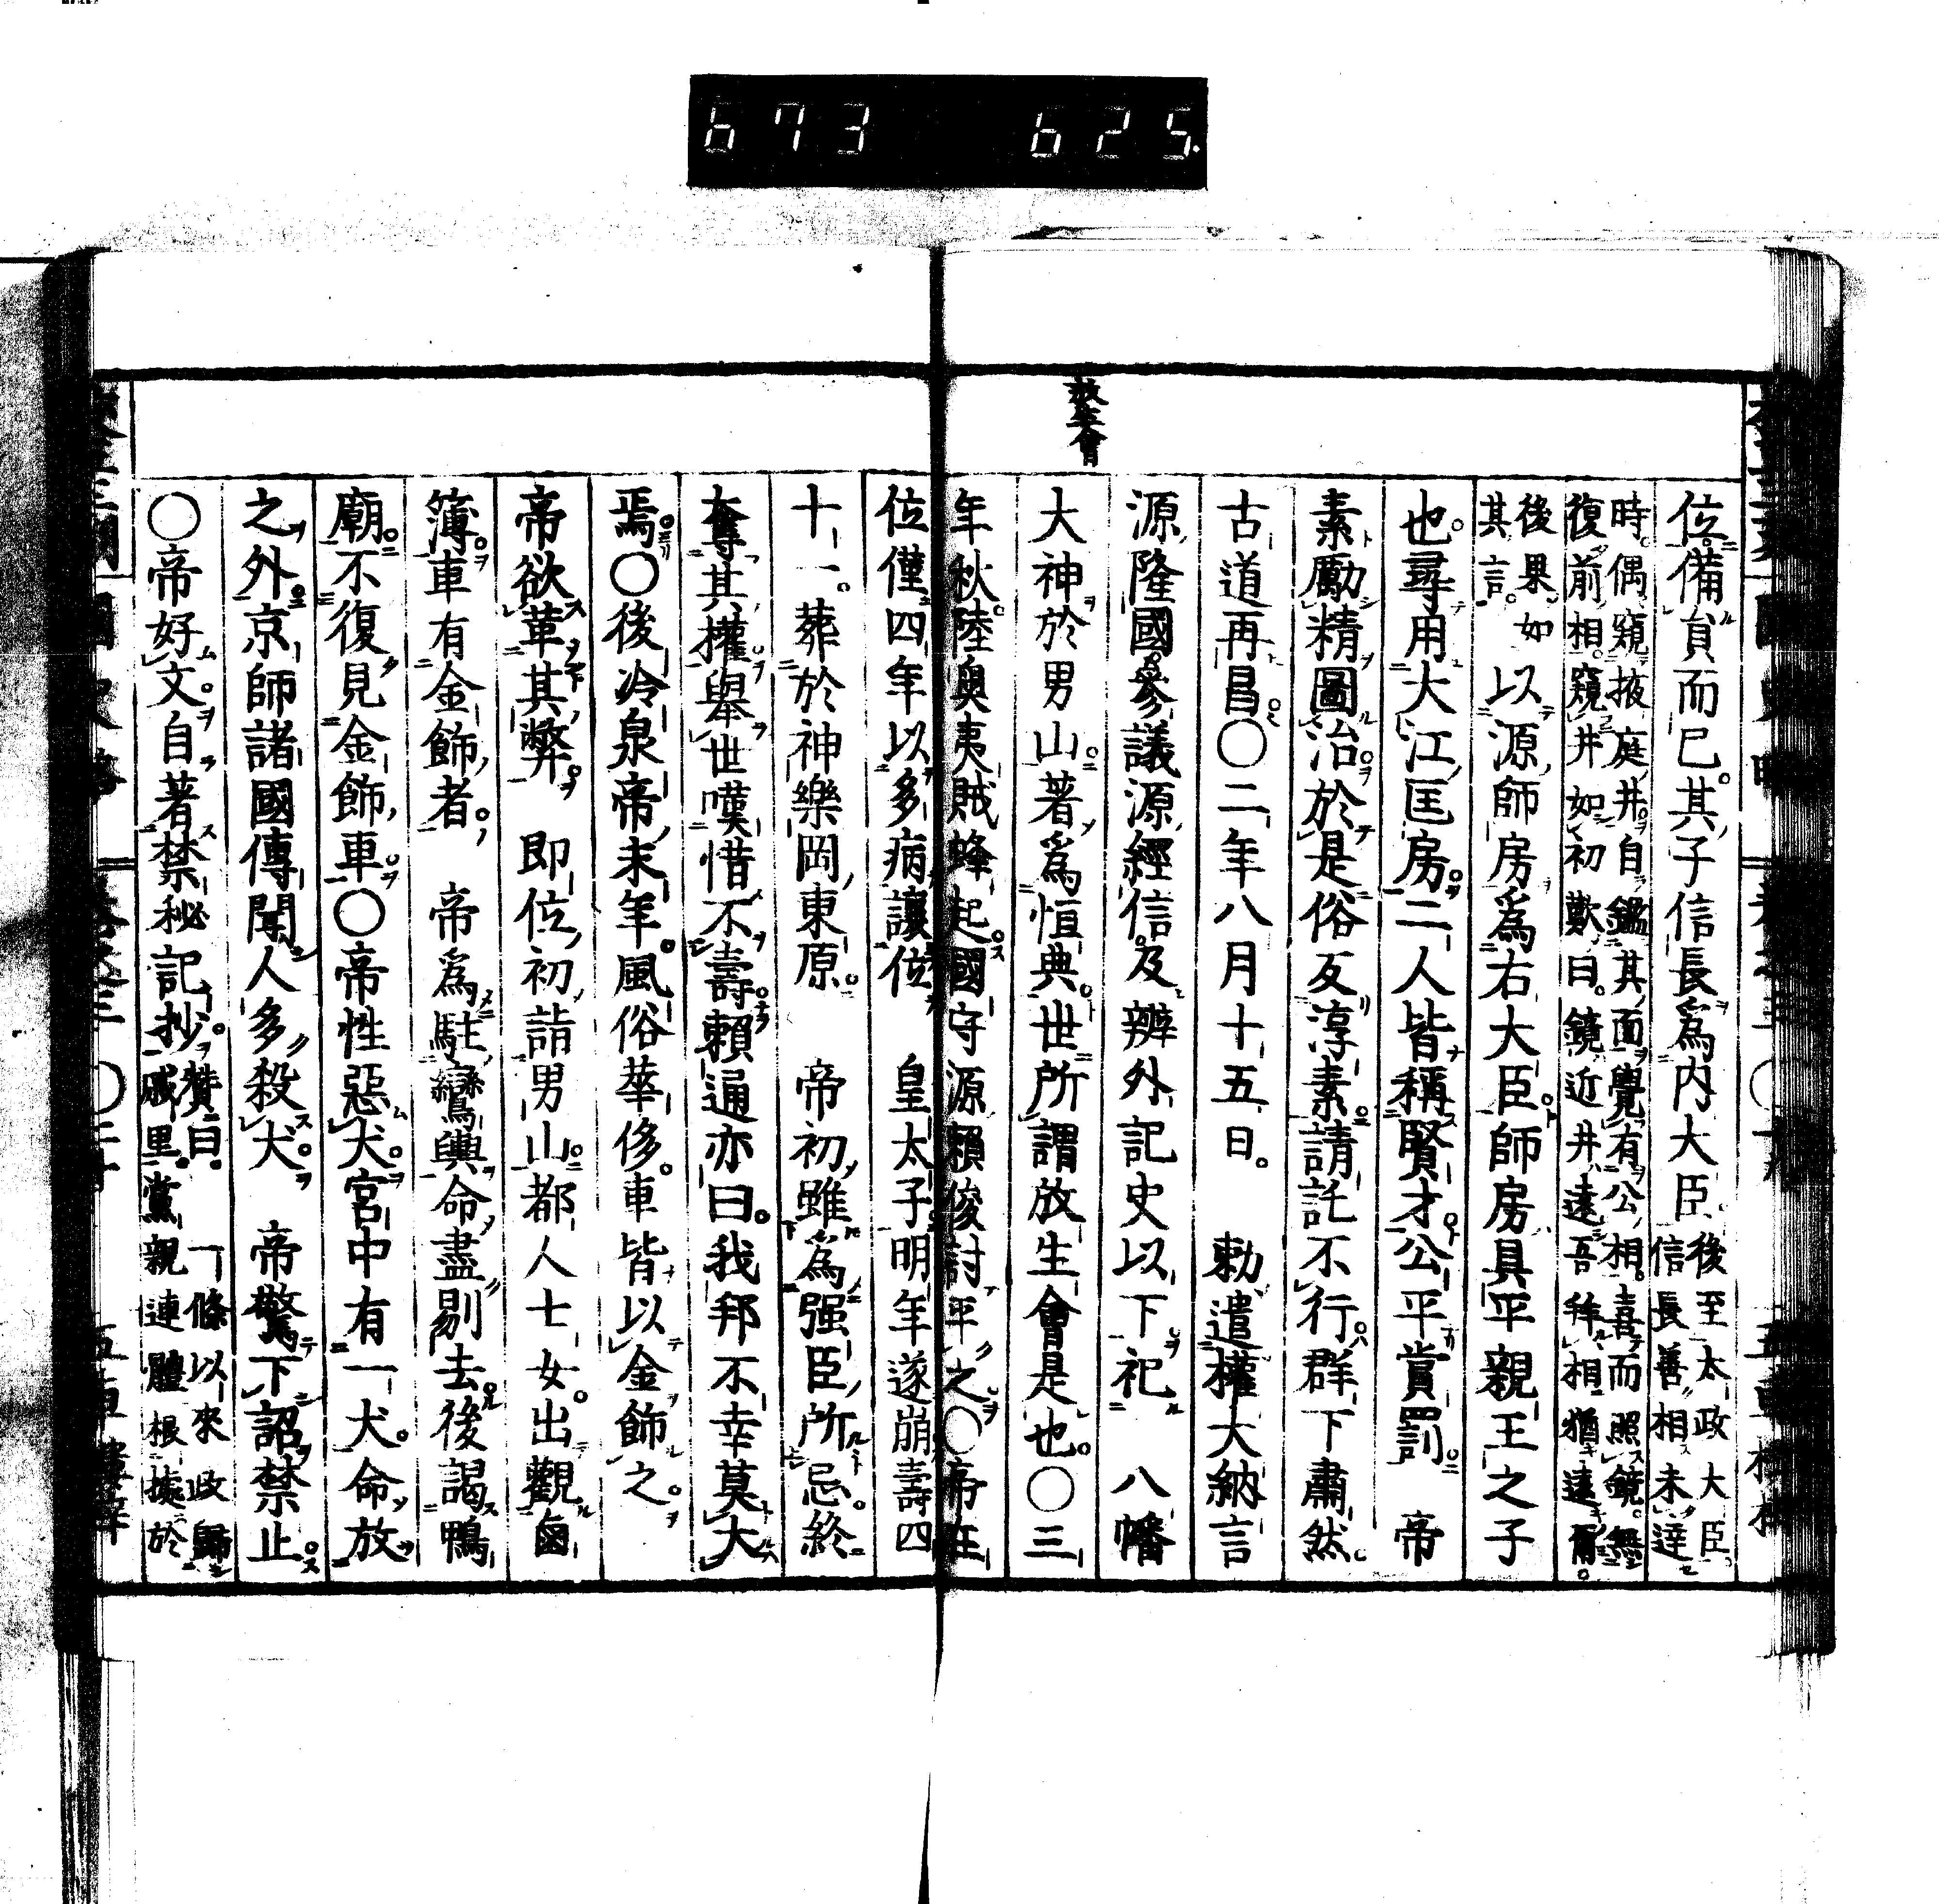 673 625.
放生會
位備貟而已其子信長爲内大臣後至太政大臣信長善相未達
時偶窺掖庭井自鑑其面覺有公相喜而照鏡無
復前相窺井如初歎曰鏡近井遠吾拜相猶遠爾
後果如其言以源師房爲右大臣師房具平親王之子
也尋用大江匡房二人皆稱賢才公平賞罰 帝
素勵精圖治於是俗反淳素請託不行群下肅然
古道再昌〇二年八月十五日 勅遣權大納言
源隆國參議源經信及辨外記史以下祀 八幡
大神於男山著爲恒典世所謂放生會是也〇三
年秋陸奥夷賊蜂起國守源賴俊討平之〇帝在
位僅四年以多病讓位 皇太子明年遂崩壽四
十一葬於神樂岡東原 帝初雖爲强臣所忌終
奪其權舉世嘆惜不壽賴通亦曰我邦不幸莫大
焉〇後冷泉帝末年風俗華侈車皆以金飾之
帝欲革其弊 即位初詣男山都人士女出觀鹵
簿車有金飾者 帝爲駐鸞輿命盡剔去後謁鴨
廟不復見金飾車〇帝性惡犬宮中有一犬命放
之外京師諸國傳聞人多殺犬 帝驚下詔禁止
〇帝好文自著禁秘記抄賛曰 一條以來政歸戚里黨親連體根據於